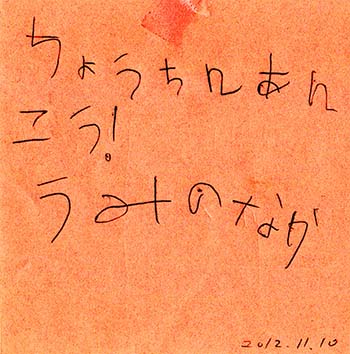 ちょうちんあん
こう!
うみのなか
2012.11.10